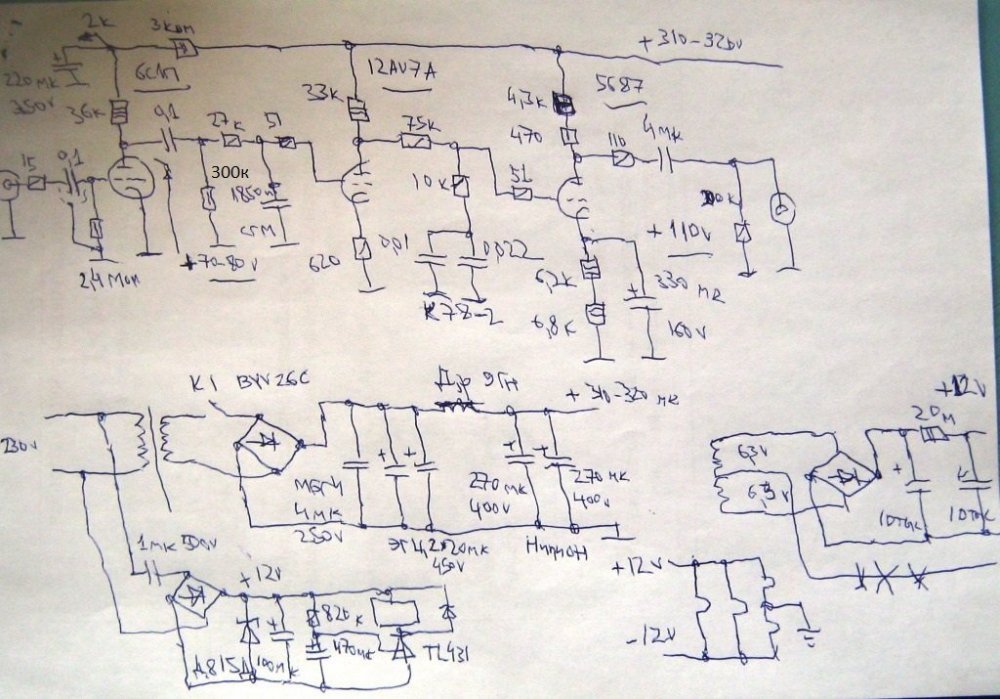 2к
3ком
+310-320v
220мк
350v
6С1П
12AU7A
5687
36к
0,1
27к
51
33к
75к
4,3к
470
110
4мк
15
0,1
300к
1850п
сгм
10к
51
2,4 Мом
+70-80v
620
0,01
0,022
К78-2
6,2к
6,8к
+110v
330 мк
160v
К1 BYV26C
Др 9Гн
+310-320
230v
МБГЧ
4мк
250v
270мк
400v
270мк
400v
450v
Нипион
1мк 500v
+12v
Д815Д
100мк
820к
470мк
TL431
6,3v
6,3v
+12v
+12v
-12v